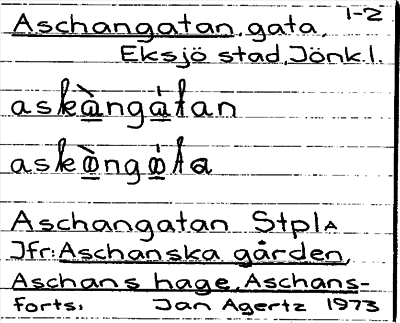 1-2
Aschangatan, gata,
Eksjö stad, Jönk.l.
Aschangatan StplA
Jfr: Aschanska gården,
Aschans hage, Aschans-
forts. Jan Agertz 1973